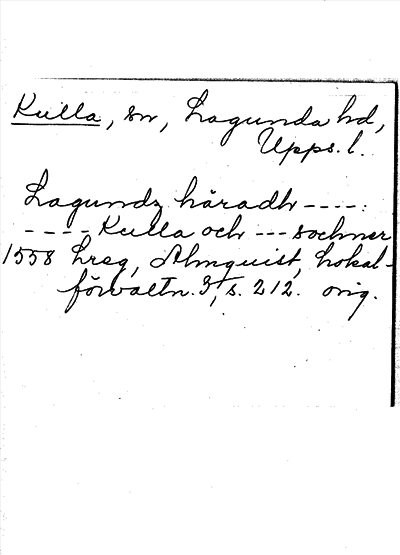 Kulla, sn, Lagunda hd,
Upps. l.
Lagundz häradh ----:
---- Kulla och --- sochner
1558 Lreg, Almquist, Lokal-
förvaltn. 3, s. 212. orig.